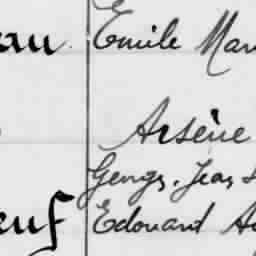 eau Emile Mar
Arsène
Georges, Jean
euf Edouard Au